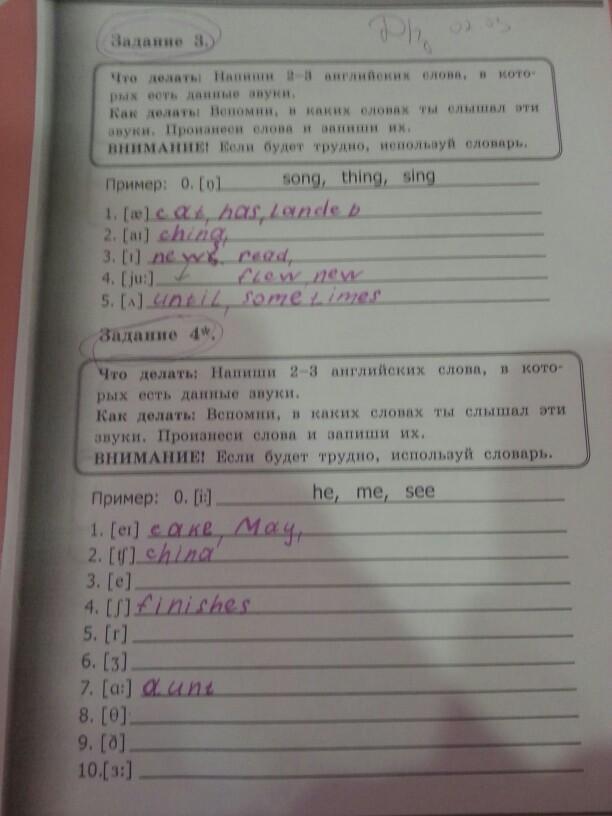 Задание 3.
02.03
Что делать: Напиши 2–3 английских слова, в кото-
рых есть данные звуки.
Как делать: Вспомни, в каких словах ты слышал эти
звуки. Произнеси слова и запиши их.
ВНИМАНИЕ! Если будет трудно, используй словарь.
Пример: 0. [ŋ] song, thing, sing
1. [æ] cat, has, landed
2. [aɪ] china,
3. [ɪ] news, read,
4. [ju:] flew, new
5. [ʌ] until, sometimes
Задание 4*.
Что делать: Напиши 2–3 английских слова, в кото-
рых есть данные звуки.
Как делать: Вспомни, в каких словах ты слышал эти
звуки. Произнеси слова и запиши их.
ВНИМАНИЕ! Если будет трудно, используй словарь.
Пример: 0. [i:] he, me, see
1. [eɪ] cake, May,
2. [ʧ] china
3. [e]
4. [ʃ] finishes
5. [r]
6. [ʒ]
7. [ɑ:] aunt
8. [θ]
9. [ð]
10.[ɜ:]